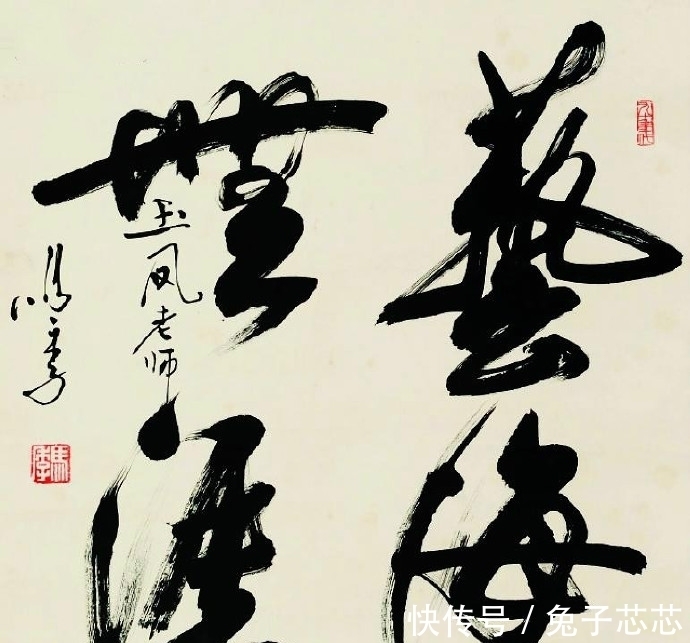 藝海
無涯
玉凤老师
馬季
快传号 / 兔子芯芯